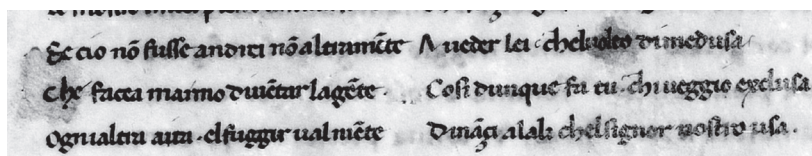 Se cio nō fusse andrei nō altramēte A ueder lei chel uolto di medusa
che facea marmo diuētar la gēte Cosi dunque fa tu chi ueggio exclusa
Ogni altra aita · el fuggir ual niēte Dināçi a lali chel signor nostro usa .